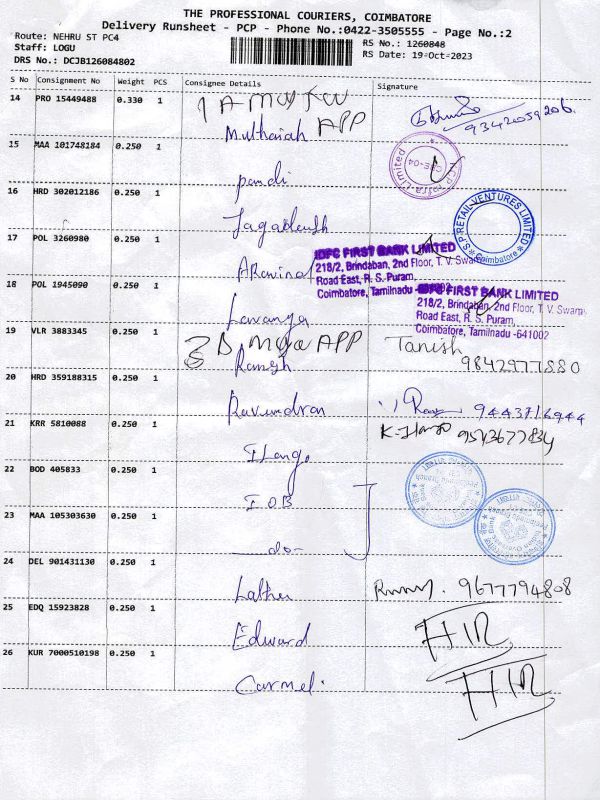 THE PROFESSIONAL COURIERS, COIMBATORE
Delivery Runsheet - PCP - Phone No.:0422-3505555 - Page No.:2
Route: NEHRU ST PC4
Staff: LOGU
DRS No.: DCJB126084802
RS No.: 1260848
RS Date: 19-Oct-2023
S No Consignment No Weight PCS Consignee Details Signature
14 PRO 15449488 0.330 1
APP
Muthaiah
9342059206
15 MAA 101748184 0.250 1
pandi
16 HRD 302012186 0.250 1
Jagadeesh
S.P. RETAIL VENTURES LIMITED
Coimbatore
17 POL 3260980 0.250 1
Aravind
IDFC FIRST BANK LIMITED
218/2, Brindaban, 2nd Floor, T. V. Swamy
Road East, R. S. Puram,
Coimbatore, Tamilnadu
18 POL 1945090 0.250 1
Lavanya
IDFC FIRST BANK LIMITED
218/2, Brindaban, 2nd Floor, T. V. Swamy
Road East, R. S. Puram,
Coimbatore, Tamilnadu -641002
19 VLR 3883345 0.250 1
APP Tanish
Ramesh 9842977880
20 HRD 359188315 0.250 1
Ravundran 9443716944
21 KRR 5810088 0.250 1
K. Ilango 9543677834
Ilango
22 BOD 405833 0.250 1
IOB
23 MAA 105303630 0.250 1
-do-
24 DEL 901431130 0.250 1
9677794808
25 EDQ 15923828 0.250 1
Edward
26 KUR 7000510198 0.250 1
Carmel